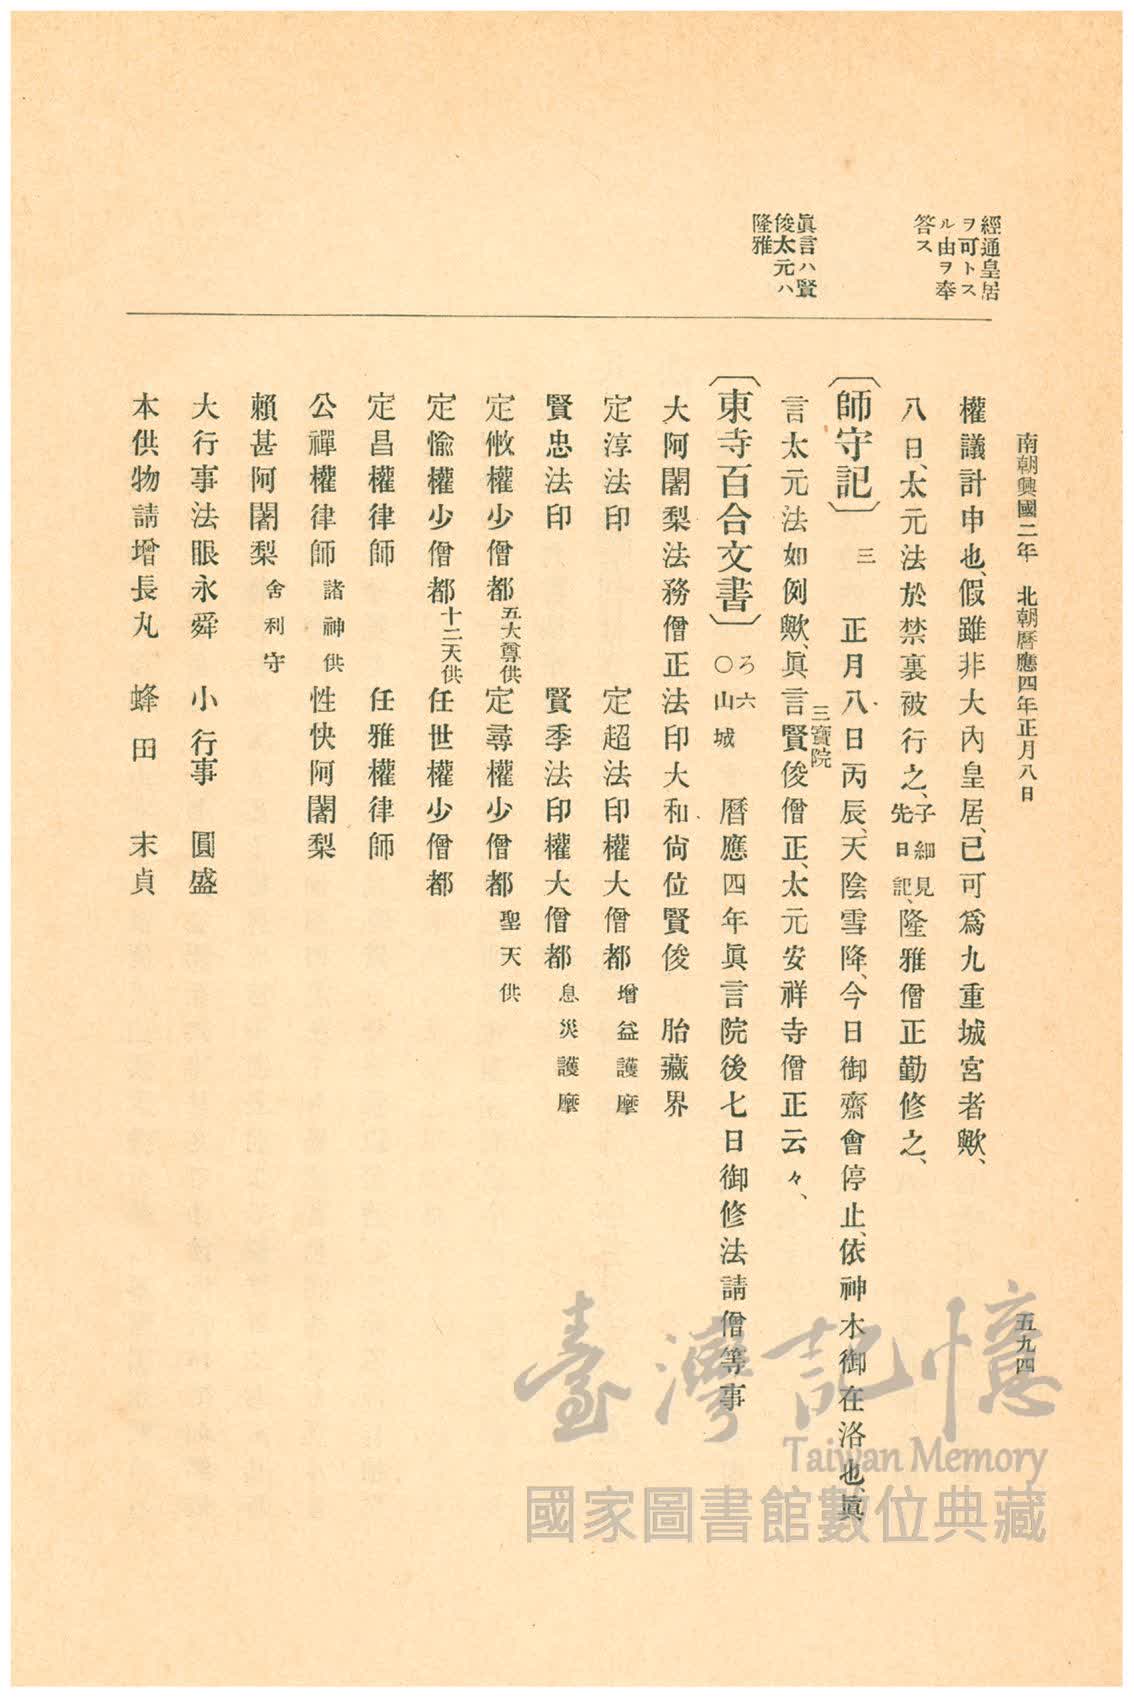 南朝興國二年　北朝曆應四年正月八日
五九四
經通皇居
ヲ可トス
ル由ヲ奉
答ス
眞言ハ賢
俊太元ハ
隆雅
權議計申也、假雖非大內皇居、已可爲九重城宮者歟、
八日、太元法於禁裏被行之、子細見先日記、隆雅僧正勤修之、
〔師守記〕　三　正月八日丙辰、天陰雪降、今日御齋會停止、依神木御在洛也、眞
言太元法如例歟、眞言賢俊僧正、太元安祥寺僧正云々、
三寶院
〔東寺百合文書〕　ろ六〇山城　曆應四年眞言院後七日御修法請僧等事
大阿闍梨法務僧正法印大和尙位賢俊　胎藏界
定淳法印　定超法印權大僧都增益護摩
賢忠法印　賢季法印權大僧都息災護摩
定攸權少僧都五大尊供　定尋權少僧都聖天供
定愉權少僧都十二天供　任世權少僧都
定昌權律師　任雅權律師
公禪權律師諸神供　性快阿闍梨
賴甚阿闍梨舍利守
大行事法眼永舜　小行事　圓盛
本供物請增長丸　蜂田　末貞
臺灣記憶
Taiwan Memory
國家圖書館數位典藏